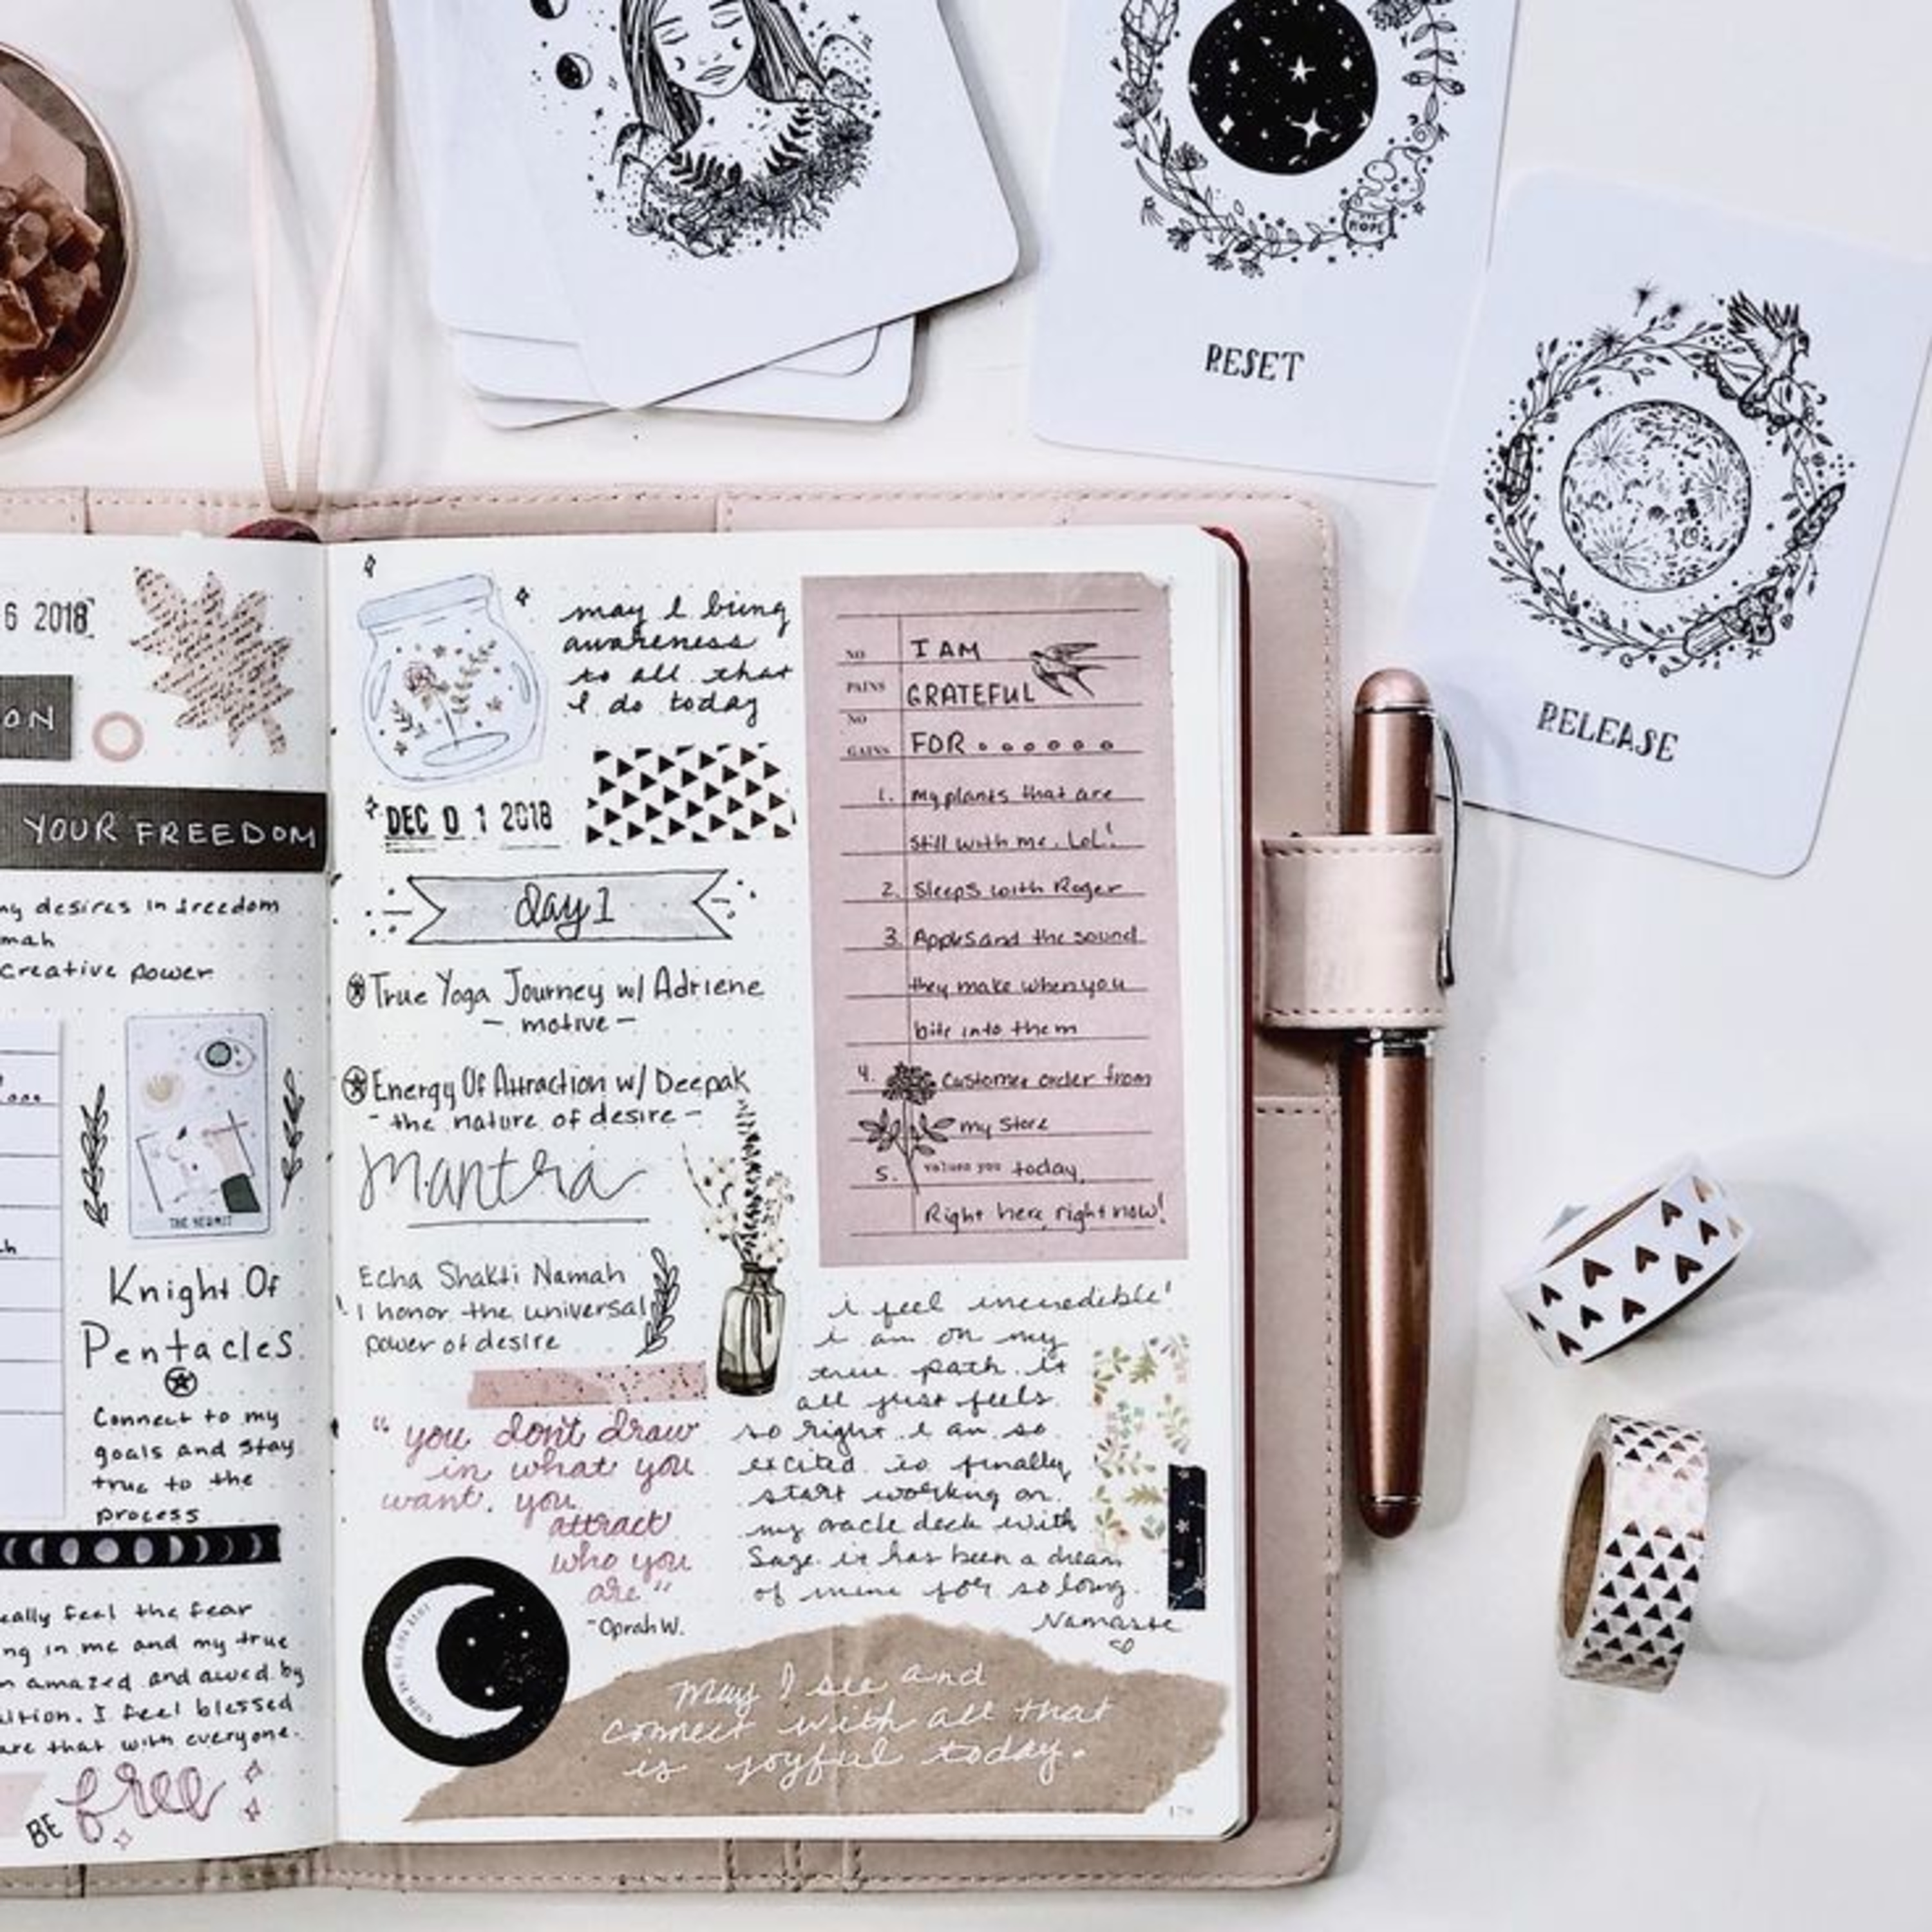 HOPE
RESET
RELEASE
6 2018
ON
YOUR FREEDOM
my desires in freedom
mah
creative power
THE HERMIT
Knight Of
Pentacles
Connect to my
goals and stay
true to the
process
eally feel the fear
ng in me and my true
amazed and awed by
ition. I feel blessed
are that with everyone.
BE free
may I bring
awareness
to all that
I do today
DEC 0 1 2018
day 1
True Yoga Journey w/ Adriene
- motive -
Energy Of Attraction w/ Deepak
- the nature of desire -
Mantra
Echa Shakti Namah
I honor the universal
power of desire
"you don't draw
in what you
want. you
attract
who you
are"
-Oprah W.
NO
PAINS
NO
GAINS
I AM
GRATEFUL
FOR
1. my plants that are
still with me. LoL!
2. Sleeps with Roger
3. Apples and the sound
they make when you
bite into them
4. Customer order from
my store
5. values you today,
Right here, right now!
i feel incredible!
i am on my
true path. it
all just feels
so right. I am so
excited to finally
start working on
my oracle deck with
Sage. it has been a dream
of mine for so long.
Namaste
May I see and
connect with all that
is joyful today.
178